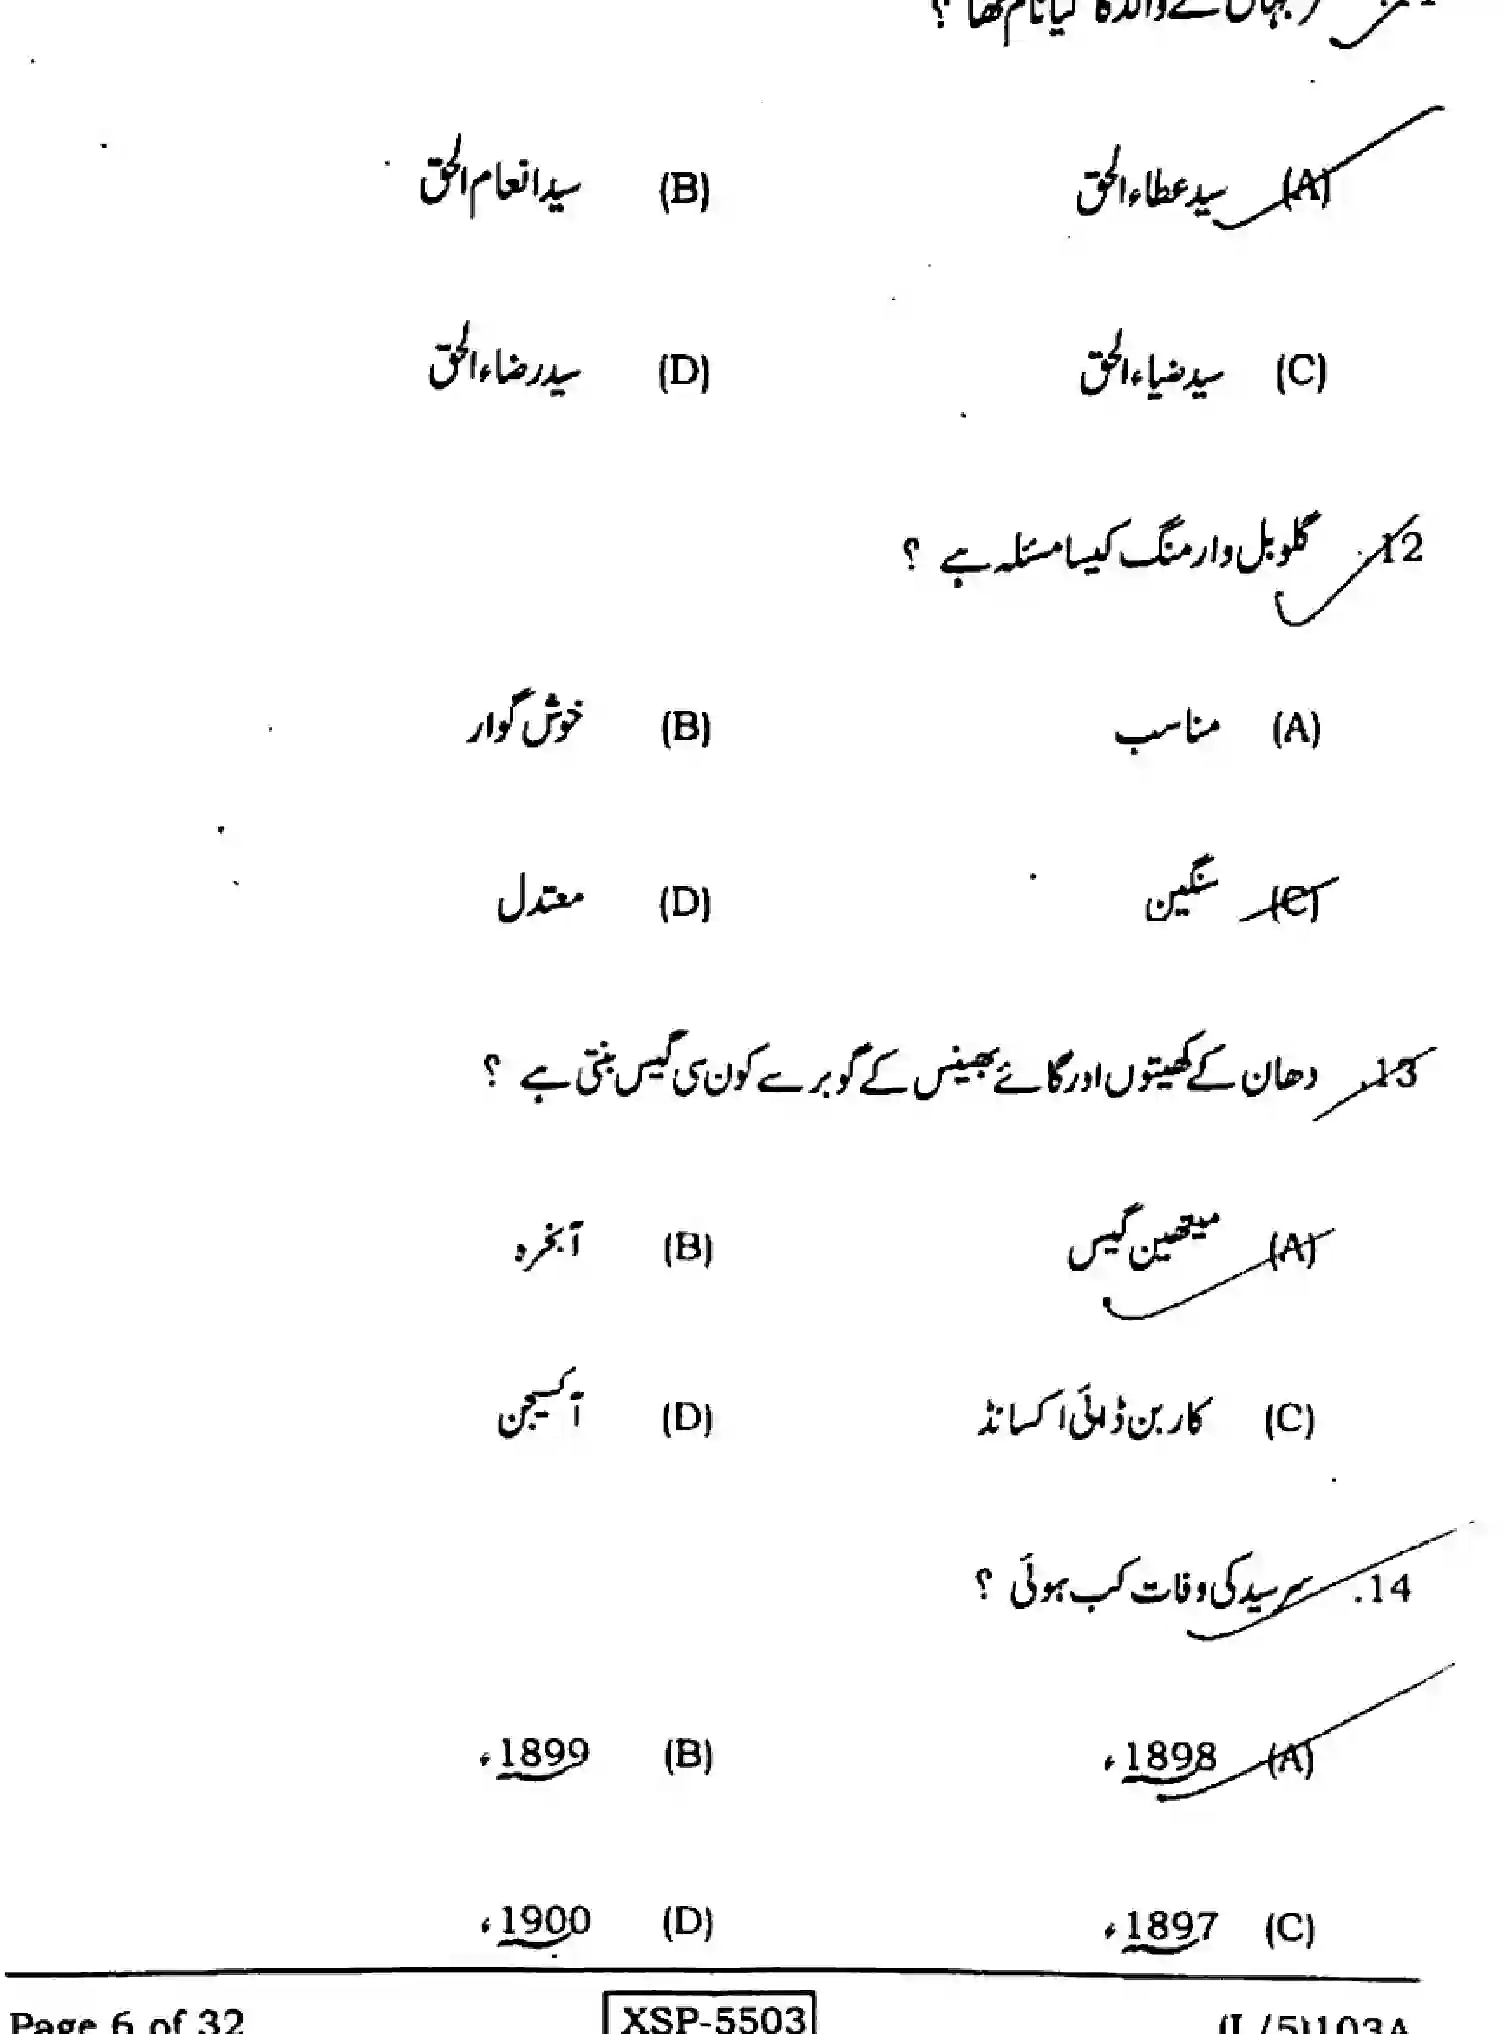 کے والد کا کیا نام تھا ؟
(A) سید عطاء الحق (B) سید انعام الحق
(C) سید ضیاء الحق (D) سید رضاء الحق
12. گلوبل وارمنگ کیسا مسئلہ ہے ؟
(A) مناسب (B) خوش گوار
(C) سنگین (D) معتدل
13. دھان کے کھیتوں اور گائے بھینس کے گوبر سے کون سی گیس بنتی ہے ؟
(A) میتھین گیس (B) آبخرہ
(C) کاربن ڈائی اکسائڈ (D) آکسیجن
14. سر سید کی وفات کب ہوئی ؟
(A) 1898ء (B) 1899ء
(C) 1897ء (D) 1900ء
Page 6 of 32 XSP-5503 (L/5)103A